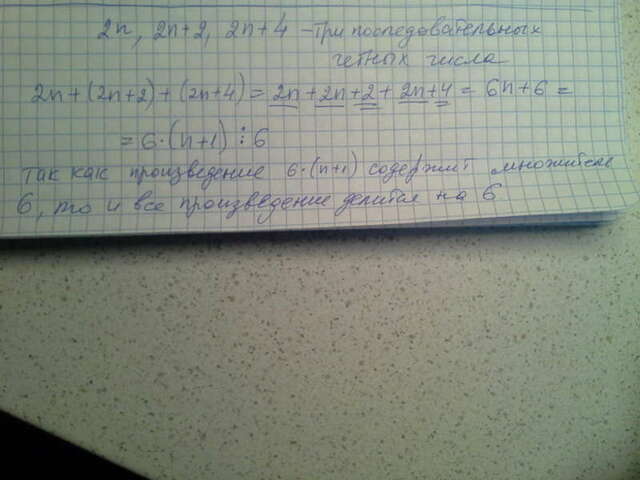 2n, 2n+2, 2n+4 – три последовательных
четных числа
2n + (2n+2) + (2n+4) = 2n + 2n + 2 + 2n + 4 = 6n + 6 =
= 6·(n+1) ⋮ 6
так как произведение 6·(n+1) содержит множитель
6, то и все произведение делится на 6